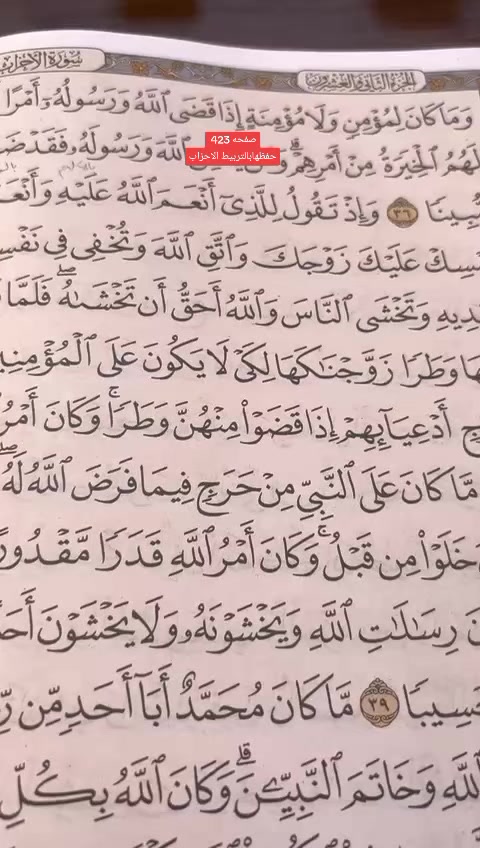 سُورَةُ الأَحْزَاب
الجُزْءُ الثَّانِي وَالعِشْرُونَ
وَمَا كَانَ لِمُؤْمِنٍ وَلَا مُؤْمِنَةٍ إِذَا قَضَى ٱللَّهُ وَرَسُولُهُۥٓ أَمْرًا
صفحه 423
حفظهابالتربيط الاحزاب
لَهُمُ ٱلْخِيَرَةُ مِنْ أَمْرِهِمْ ۗ ٱللَّهَ وَرَسُولَهُۥ فَقَدْ
بِينًا ٣٦ وَإِذْ تَقُولُ لِلَّذِىٓ أَنْعَمَ ٱللَّهُ عَلَيْهِ وَأَنْعَ
سِكْ عَلَيْكَ زَوْجَكَ وَٱتَّقِ ٱللَّهَ وَتُخْفِى فِى نَفْسِ
دِيهِ وَتَخْشَى ٱلنَّاسَ وَٱللَّهُ أَحَقُّ أَن تَخْشَىٰهُ ۖ فَلَمَّا
هَا وَطَرًا زَوَّجْنَـٰكَهَا لِكَىْ لَا يَكُونَ عَلَى ٱلْمُؤْمِنِي
جٌ أَدْعِيَآئِهِمْ إِذَا قَضَوْا۟ مِنْهُنَّ وَطَرًا ۚ وَكَانَ أَمْرُ
مَّا كَانَ عَلَى ٱلنَّبِىِّ مِنْ حَرَجٍ فِيمَا فَرَضَ ٱللَّهُ لَهُۥ ۖ
خَلَوْا۟ مِن قَبْلُ ۚ وَكَانَ أَمْرُ ٱللَّهِ قَدَرًا مَّقْدُورً
نَ رِسَـٰلَـٰتِ ٱللَّهِ وَيَخْشَوْنَهُۥ وَلَا يَخْشَوْنَ أَحَ
حَسِيبًا ٣٩ مَّا كَانَ مُحَمَّدٌ أَبَآ أَحَدٍ مِّن رِّ
ٱللَّهِ وَخَاتَمَ ٱلنَّبِيِّـۧنَ ۗ وَكَانَ ٱللَّهُ بِكُلِّ